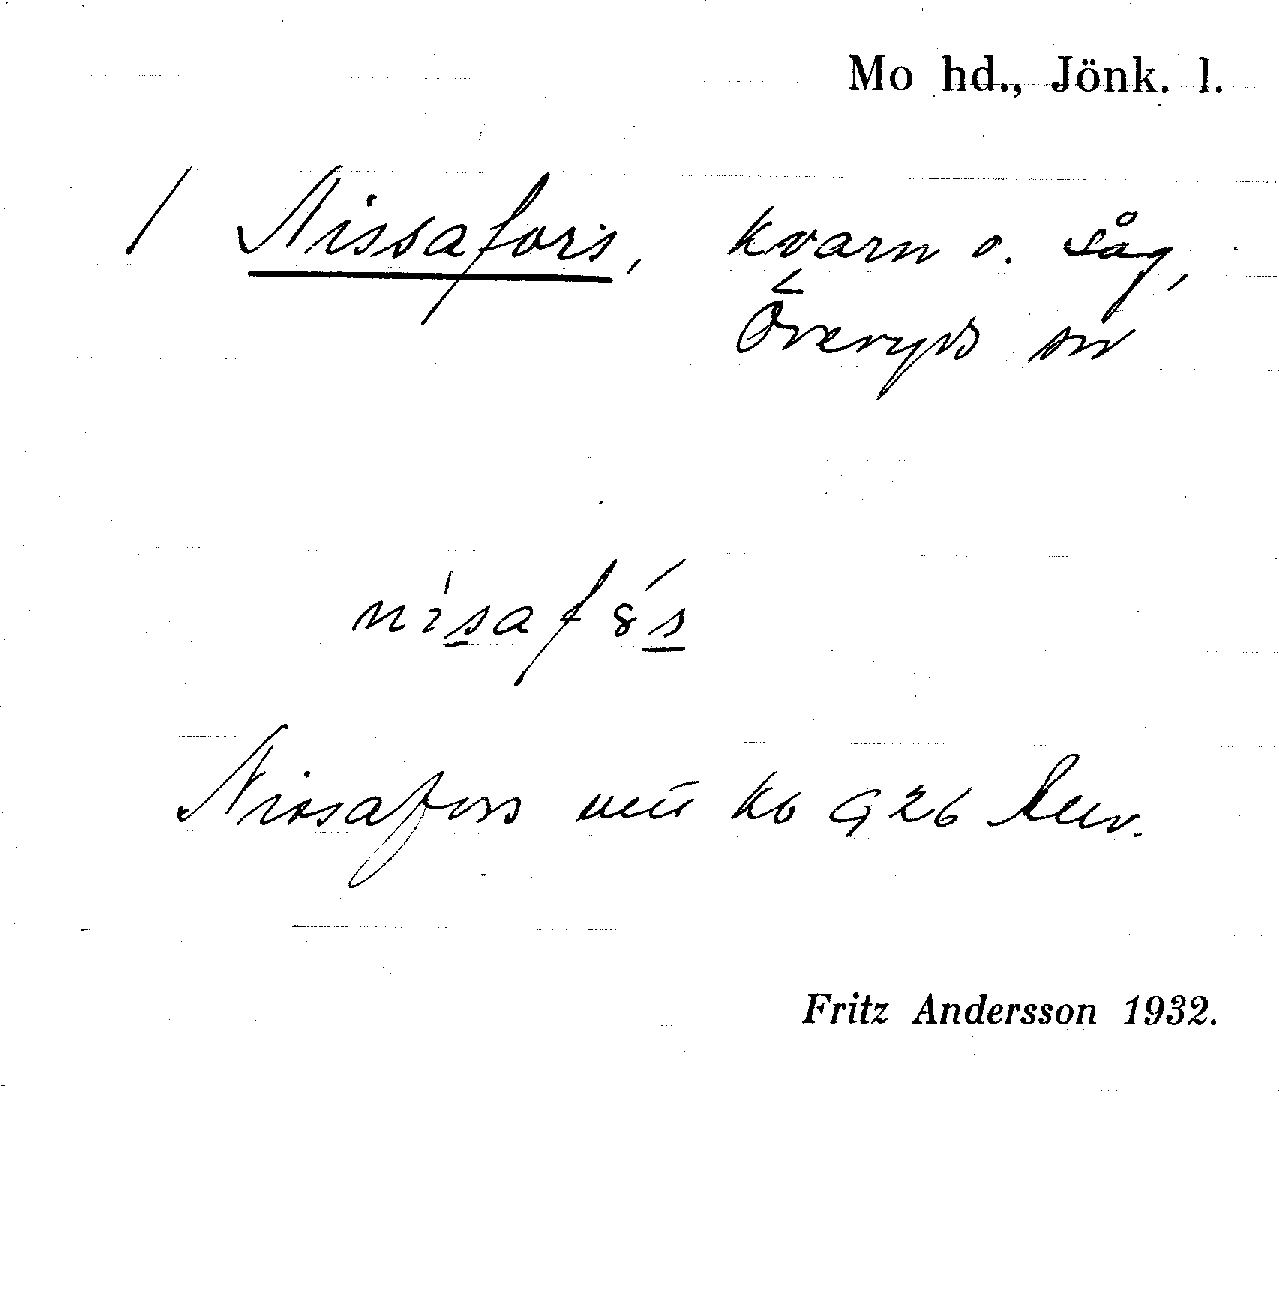 Mo hd., Jönk. l.
/ Nissafors, kvarn o. såg,
Öreryds sn
nisaf8s
Nissafors kb 926
Fritz Andersson 1932.